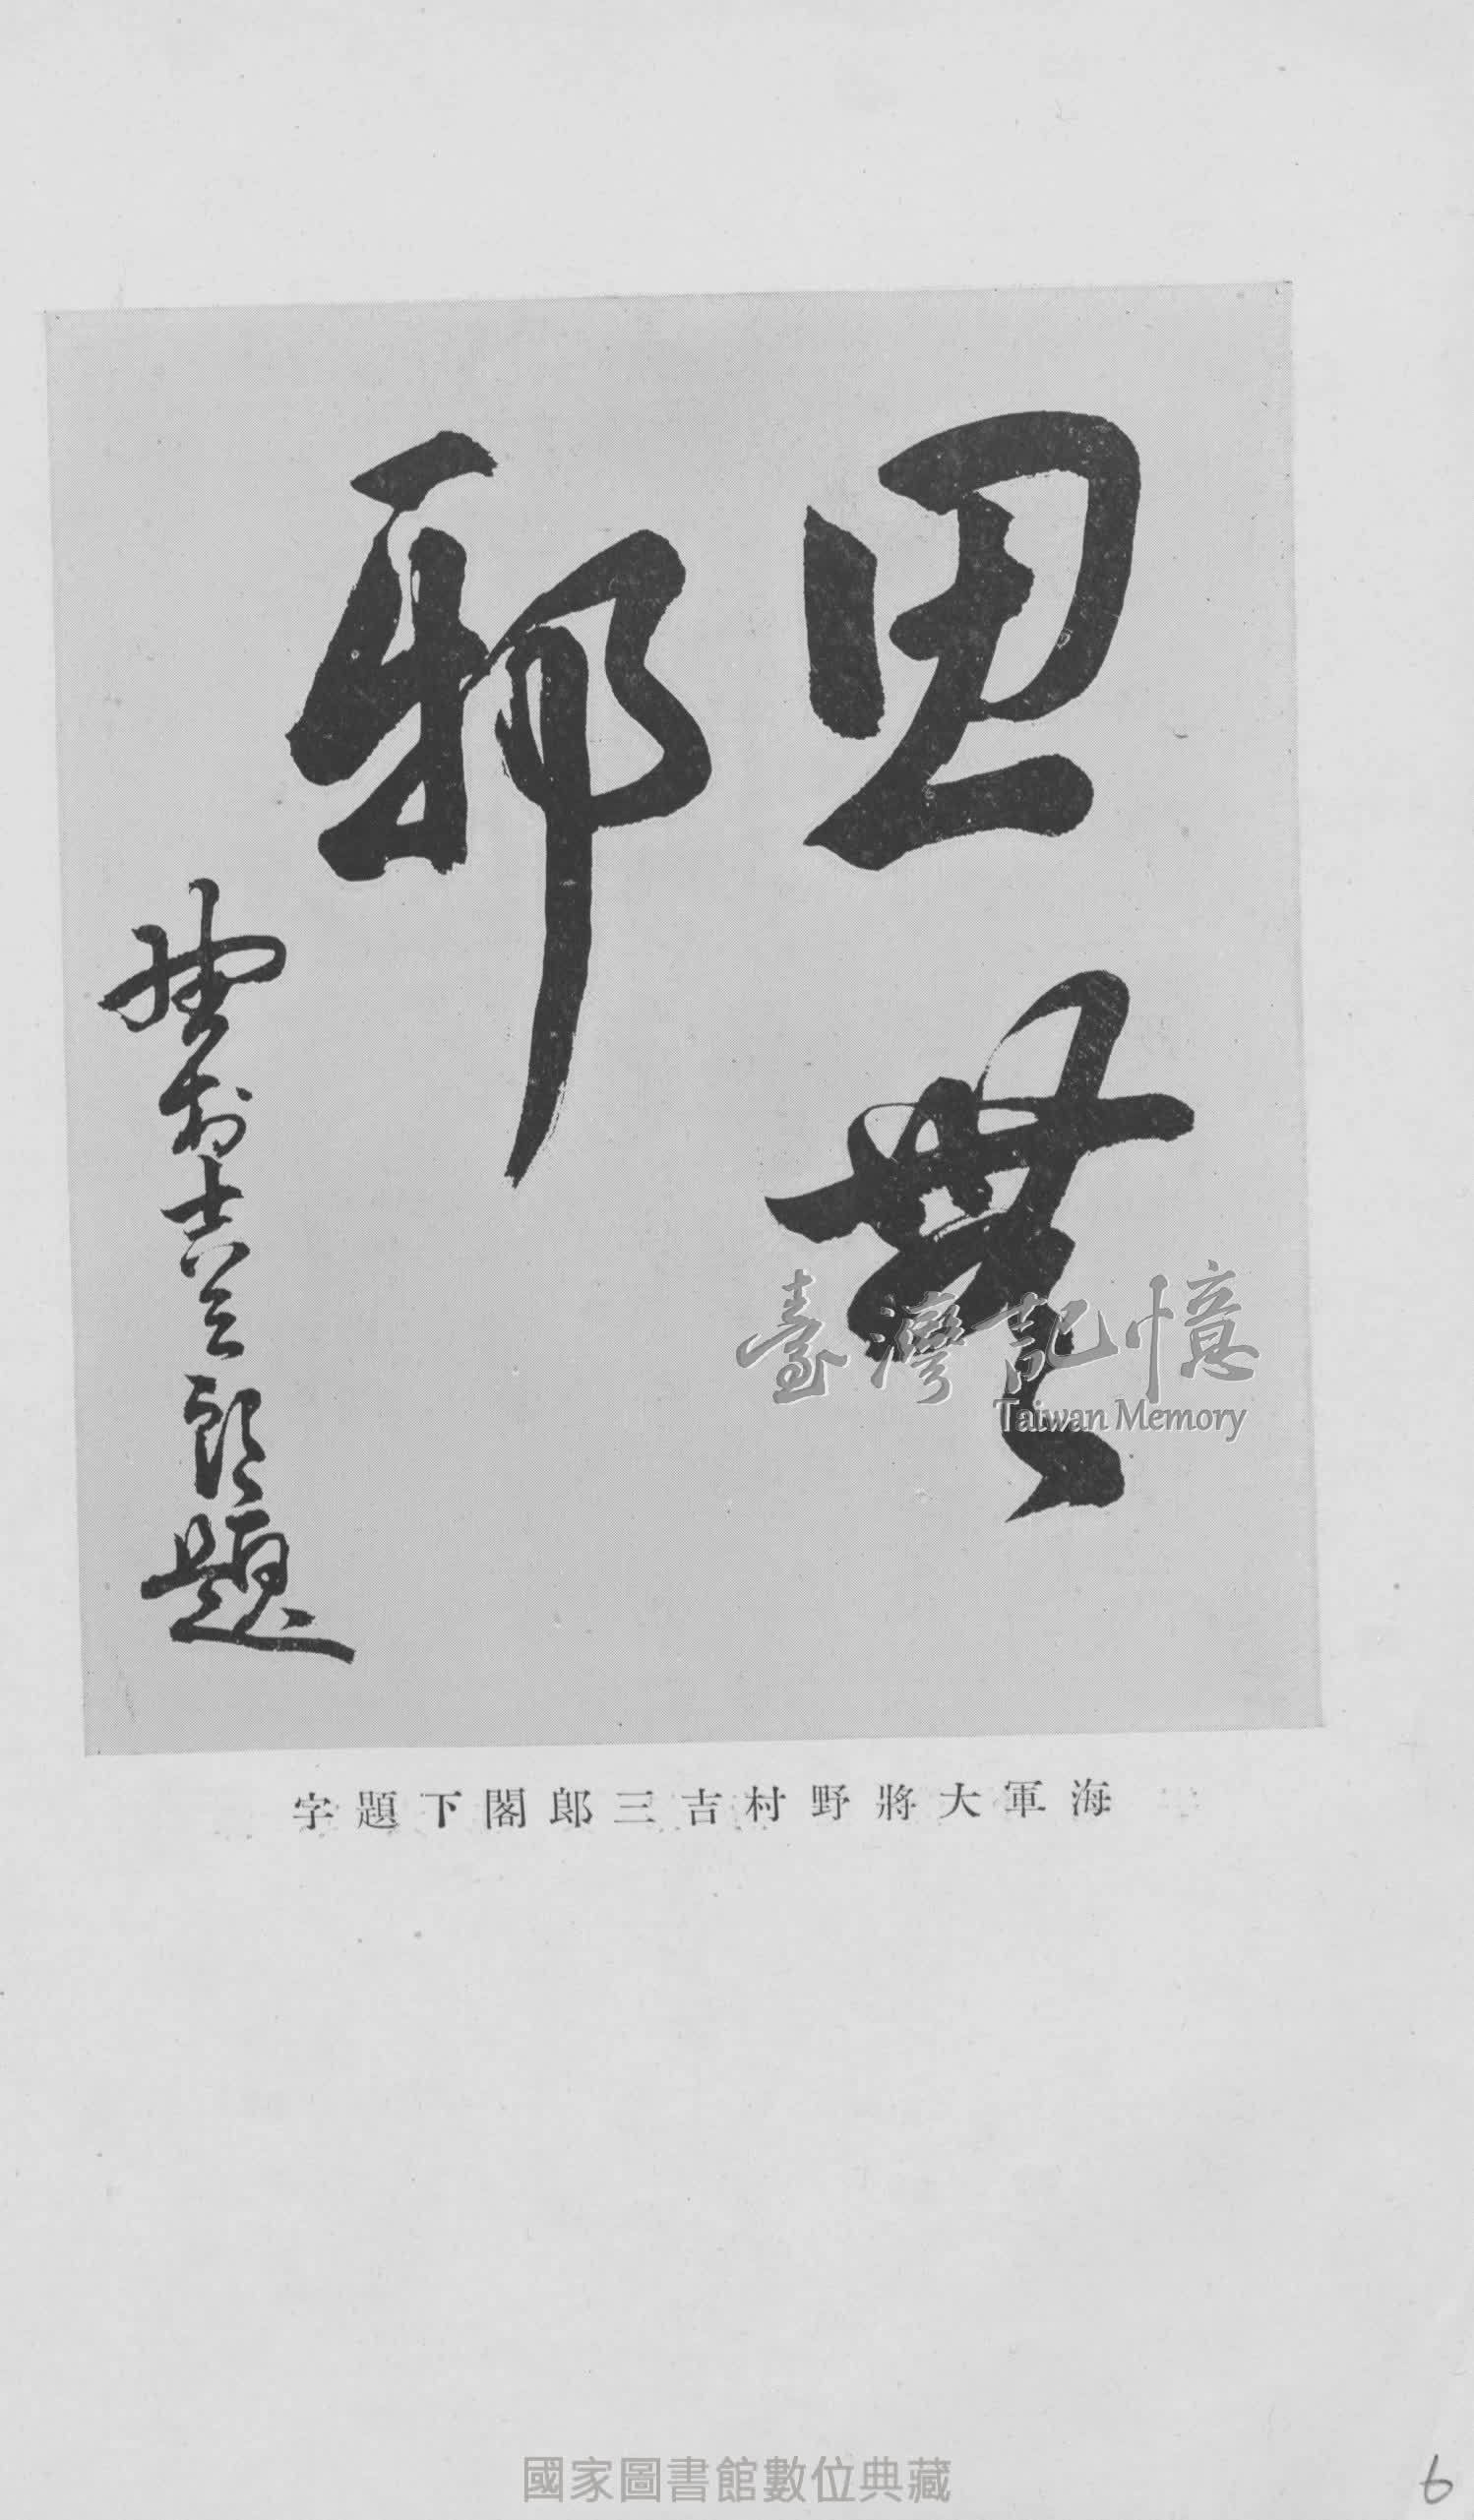 思無
邪
野村吉三郎題
海軍大將野村吉三郎閣下題字
臺灣記憶
Taiwan Memory
國家圖書館數位典藏
6